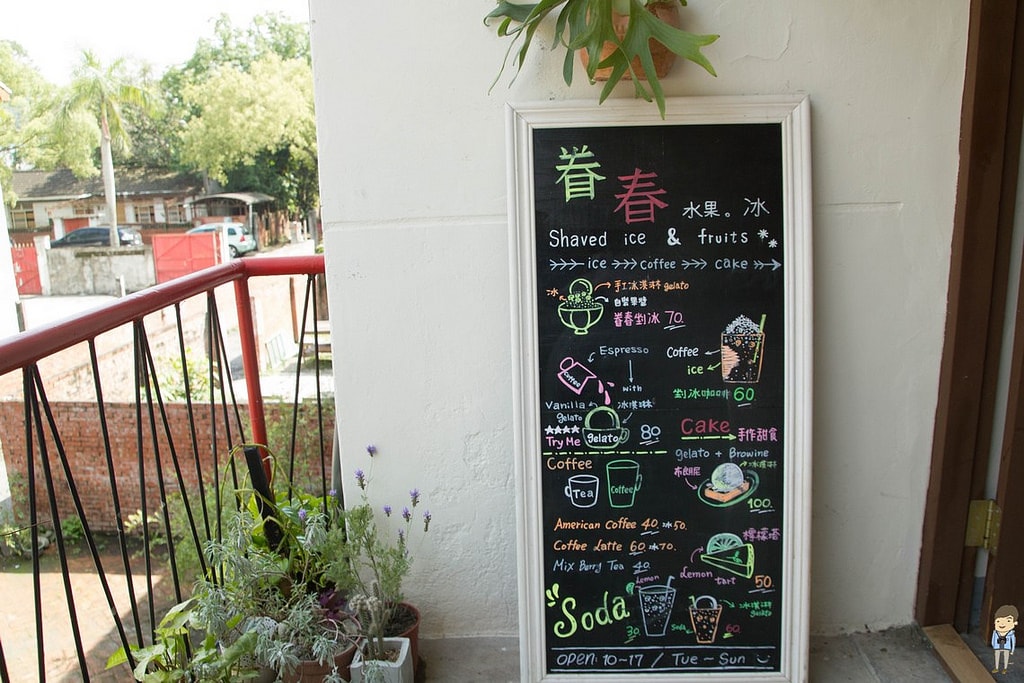 眷春
水果。冰
Shaved ice & fruits
ice coffee cake
冰
手工冰淇淋 gelato
自製果醬
眷春剉冰 70.
Espresso
coffee
with
Vanilla gelato
冰淇淋
Try Me
gelato
80
Coffee
ice
剉冰咖啡 60
Cake
手作甜食
gelato + Browine
布朗尼
冰淇淋
100.
Coffee
Tea
Coffee
American Coffee 40. 冰50.
Coffee Latte 60. 冰70.
Mix Berry Tea 40.
檸檬塔
Lemon tart
50.
Soda
Lemon
30.
soda
60.
冰淇淋
gelato
OPEN: 10~17 / Tue ~ Sun